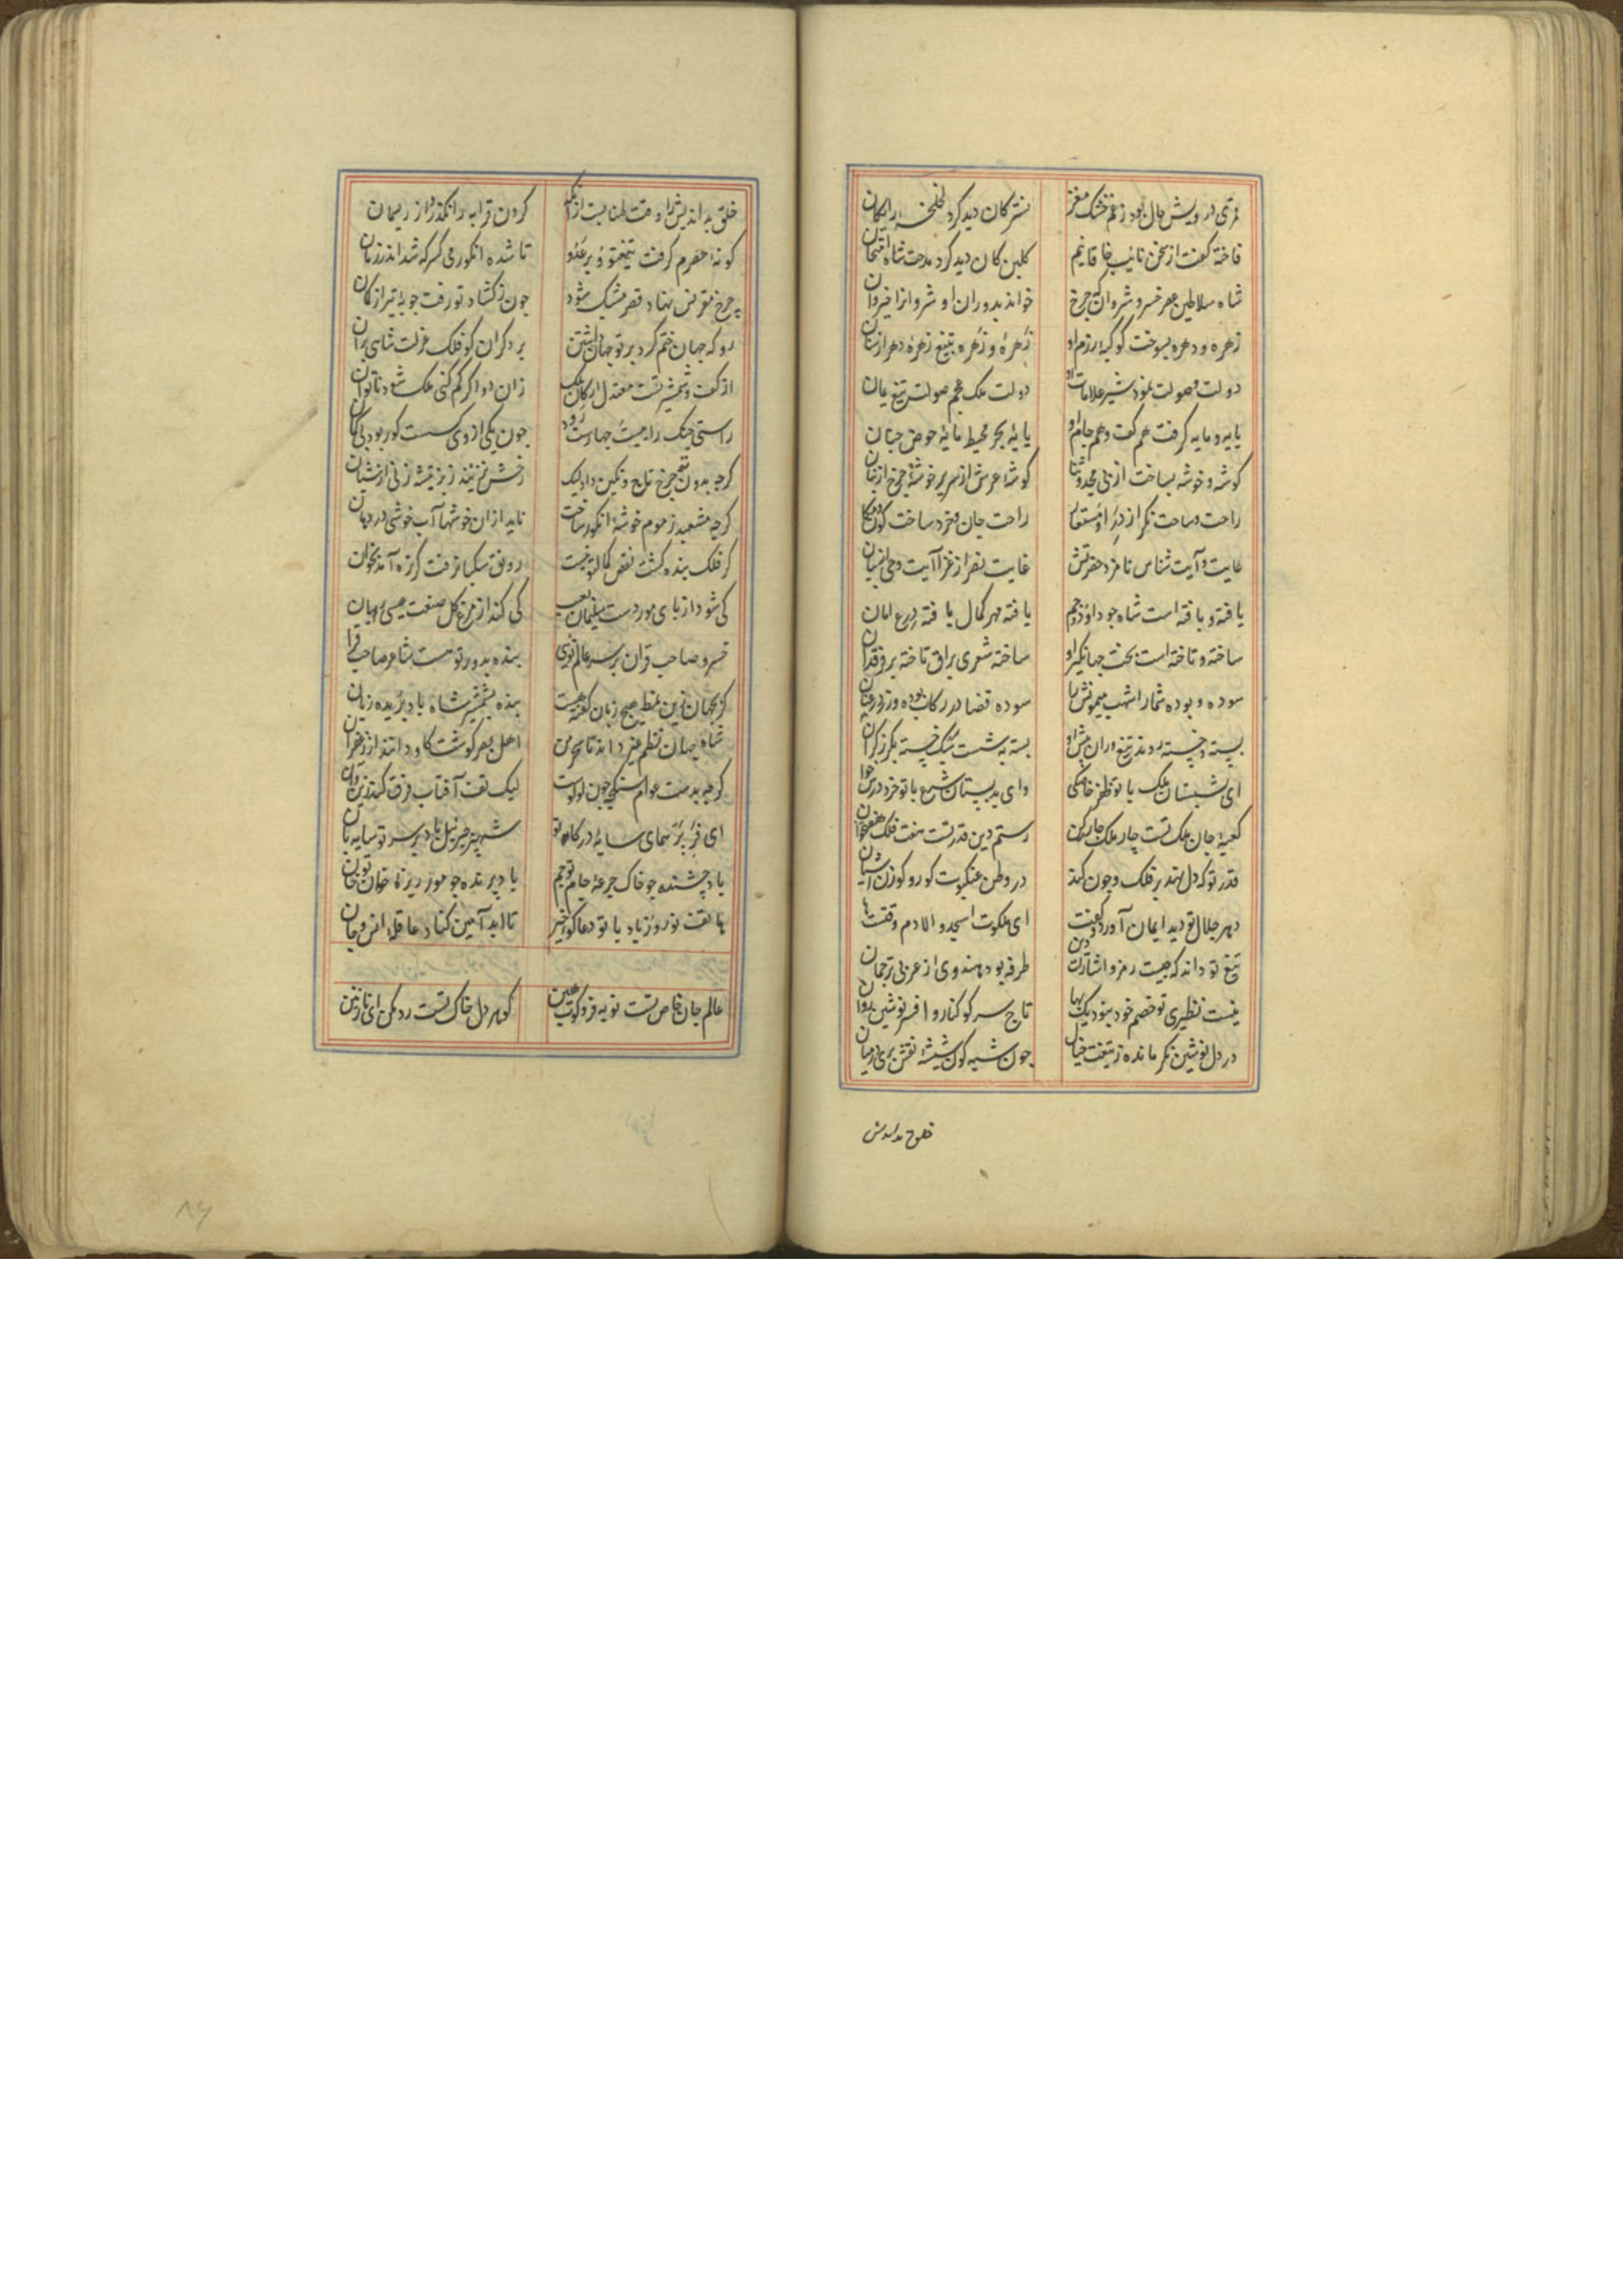 قمری درویش حال بود ز غم خشک مغز نسترکان دید کرد لخلخه رایکان
فاخته کفت از سخن نایب خاقانیم کلبن کان دید کرد مدحت شاه امتحان
شاه سلاطین عصر خسرو شروان که چرخ خواند بدوران او شروانرا خیروان
زهره و دهره بسوخت کوکبه رزم او زهره زهره بتیغ زهره دهر از سنان
دولت و صولت نمود شیر علامات او دولت ملک عجم صولت تیغ یمان
پایه و مایه کرفت هم کف و هم جام او پایه بحر محیط مایه حوض جنان
کوشه و خوشه بساخت از پی مجد و ثنا کوشه عرش از سریر خوشه چرخ از بنان
راحت و ساحت نکر از در او مستعار راحت جان و خرد ساحت کون و مکان
غایت و آیت شناس نامزد حضرتش غایت نصر از غزا آیت وحی از بیان
یافته و بافته است شاه چو داود و جم یافته مهر کمال بافته درع امان
ساخته و تاخته است بخت جهانکیر او ساخته شعری براق تاخته بر فرقدان
سوده و بوده شمار اشهب میمونش را سوده قضا در رکاب بوده قدر در عنان
بسته و خسته روند تیغ وران پیش او بسته به شست سبک خسته بکرز کران
ای شبستان ملک با تو ظفر خانکی وای بدبستان شرع با تو خرد درس خوان
کعبه جان ملک تست چار ملک چار رکن رستم دین قدر تست هفت فلک هفتخوان
قدر تو که دل نهد بر فلک و چون کند در وطن عنکبوت کور و کوزن آشیان
دهر جلال تو دید ایمان آورد و کفت ای ملکوت اسجدوا لادم وقتست ها
تیغ تو داند که چیست رمز و اشارات دین طرفه بود هندوی از عربی ترجمان
نیست نظیری تو خصم خود نبود یک بها تاج سر کوکنار و افسر نوشین روان
در دل نوشین نکر مانده ز تیغت خیال چون شبه کون شیشه نقش پری در میان
خلق بداندیش را وقت طنابست از آنکه کردن قرابه را نکذرد از ریسمان
کونه حصرم کرفت تیغ تو و بر عدو تا شده انکور می سرکه شد اندر زمان
چرخ مقرنس نهاد قصر مشبک شود چون ز کشاد تو رفت چوبه تیر از کمان
رو که جهان ختم کرد بر تو جهان داشتن بر دکران کو فلک عزلت شاهی بران
از کف و شمشیر تست معتدل ارکان ملک زان دو اگر کم کنی ملک شود ناتوان
راستی چنک را بیست و چهارست رود چون یکی از وی کسست کور بود بی کمان
کرچه بدون تو چرخ تاج و نکین داد لیک رخش نزیبد ز بز تیشه زنی از شبان
کرچه مشعبد ز موم خوشه انکور ساخت ناید از ان خوشها آب خوشی در دهان
کر فلک بنده کشت نقص کمال تو نیست رونق سکبا نرفت کر تره آمد بخوان
کی شود از پای مور دست سلیمان بعیب کی کند از مرغ کل صنعت عیسی زیان
خسرو صاحب قران بر سر عالم توی بنده بدور تو هست شاعر صاحب قرا
کر بجهان زین نمط هیچ زبان کفته هست بنده بشمشیر شاه باد بریده زبان
شاه جهان نظم غیر داند تا سحر من اهل بصر کوشت کاو دانند از زعفران
کرچه بدست عوام سنکی چون لولوست لیک تف آفتاب فرق کند زین و آن
ای فر پر همای سایه درکاه تو شهپر جبرئیل باد بر سر تو سایه بان
باد چشنده چو خاک جرعه جام تو جم باد پرنده چو مور ریزه خوان تو جان
هاتف نوروز باد با تو دعاکوی خیر تا ابد آمین کناد عاقله انس و جان
عالم جان خاص تست نوبه فرو کوب هین کوهر دل خاک تست رد مکن ای نازنین